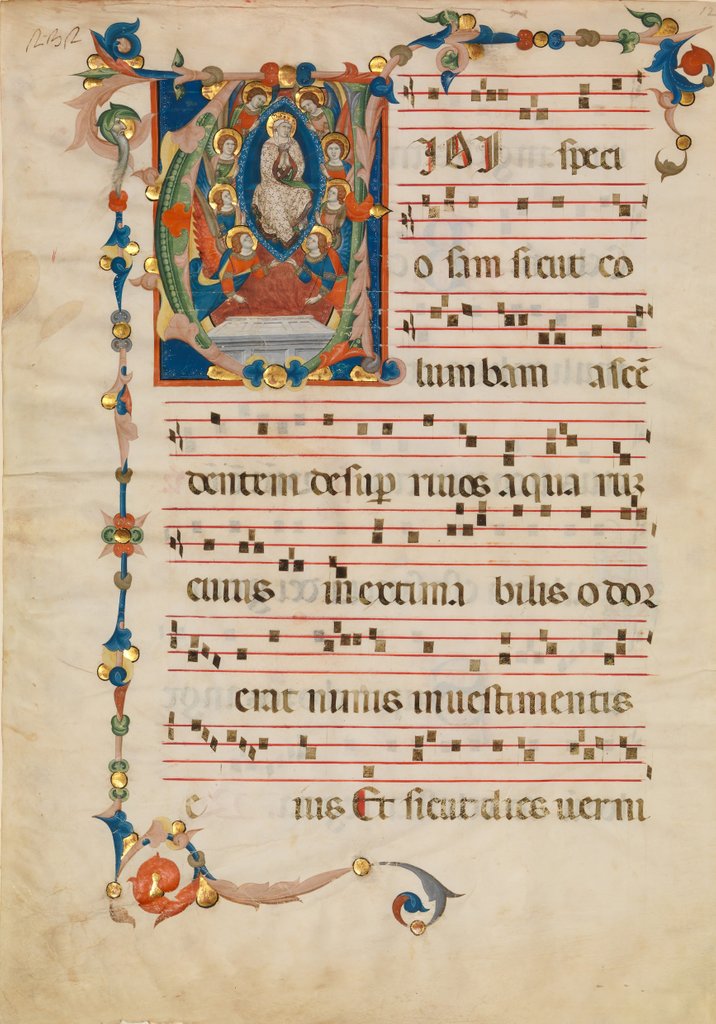 IDI speci
osam sicut co
lumbam ascē
dentem desuꝑ riuos aquaruꝫ
cuius inextimabilis odor
erat nimis inuestimentis
eius Et sicut dies uerni